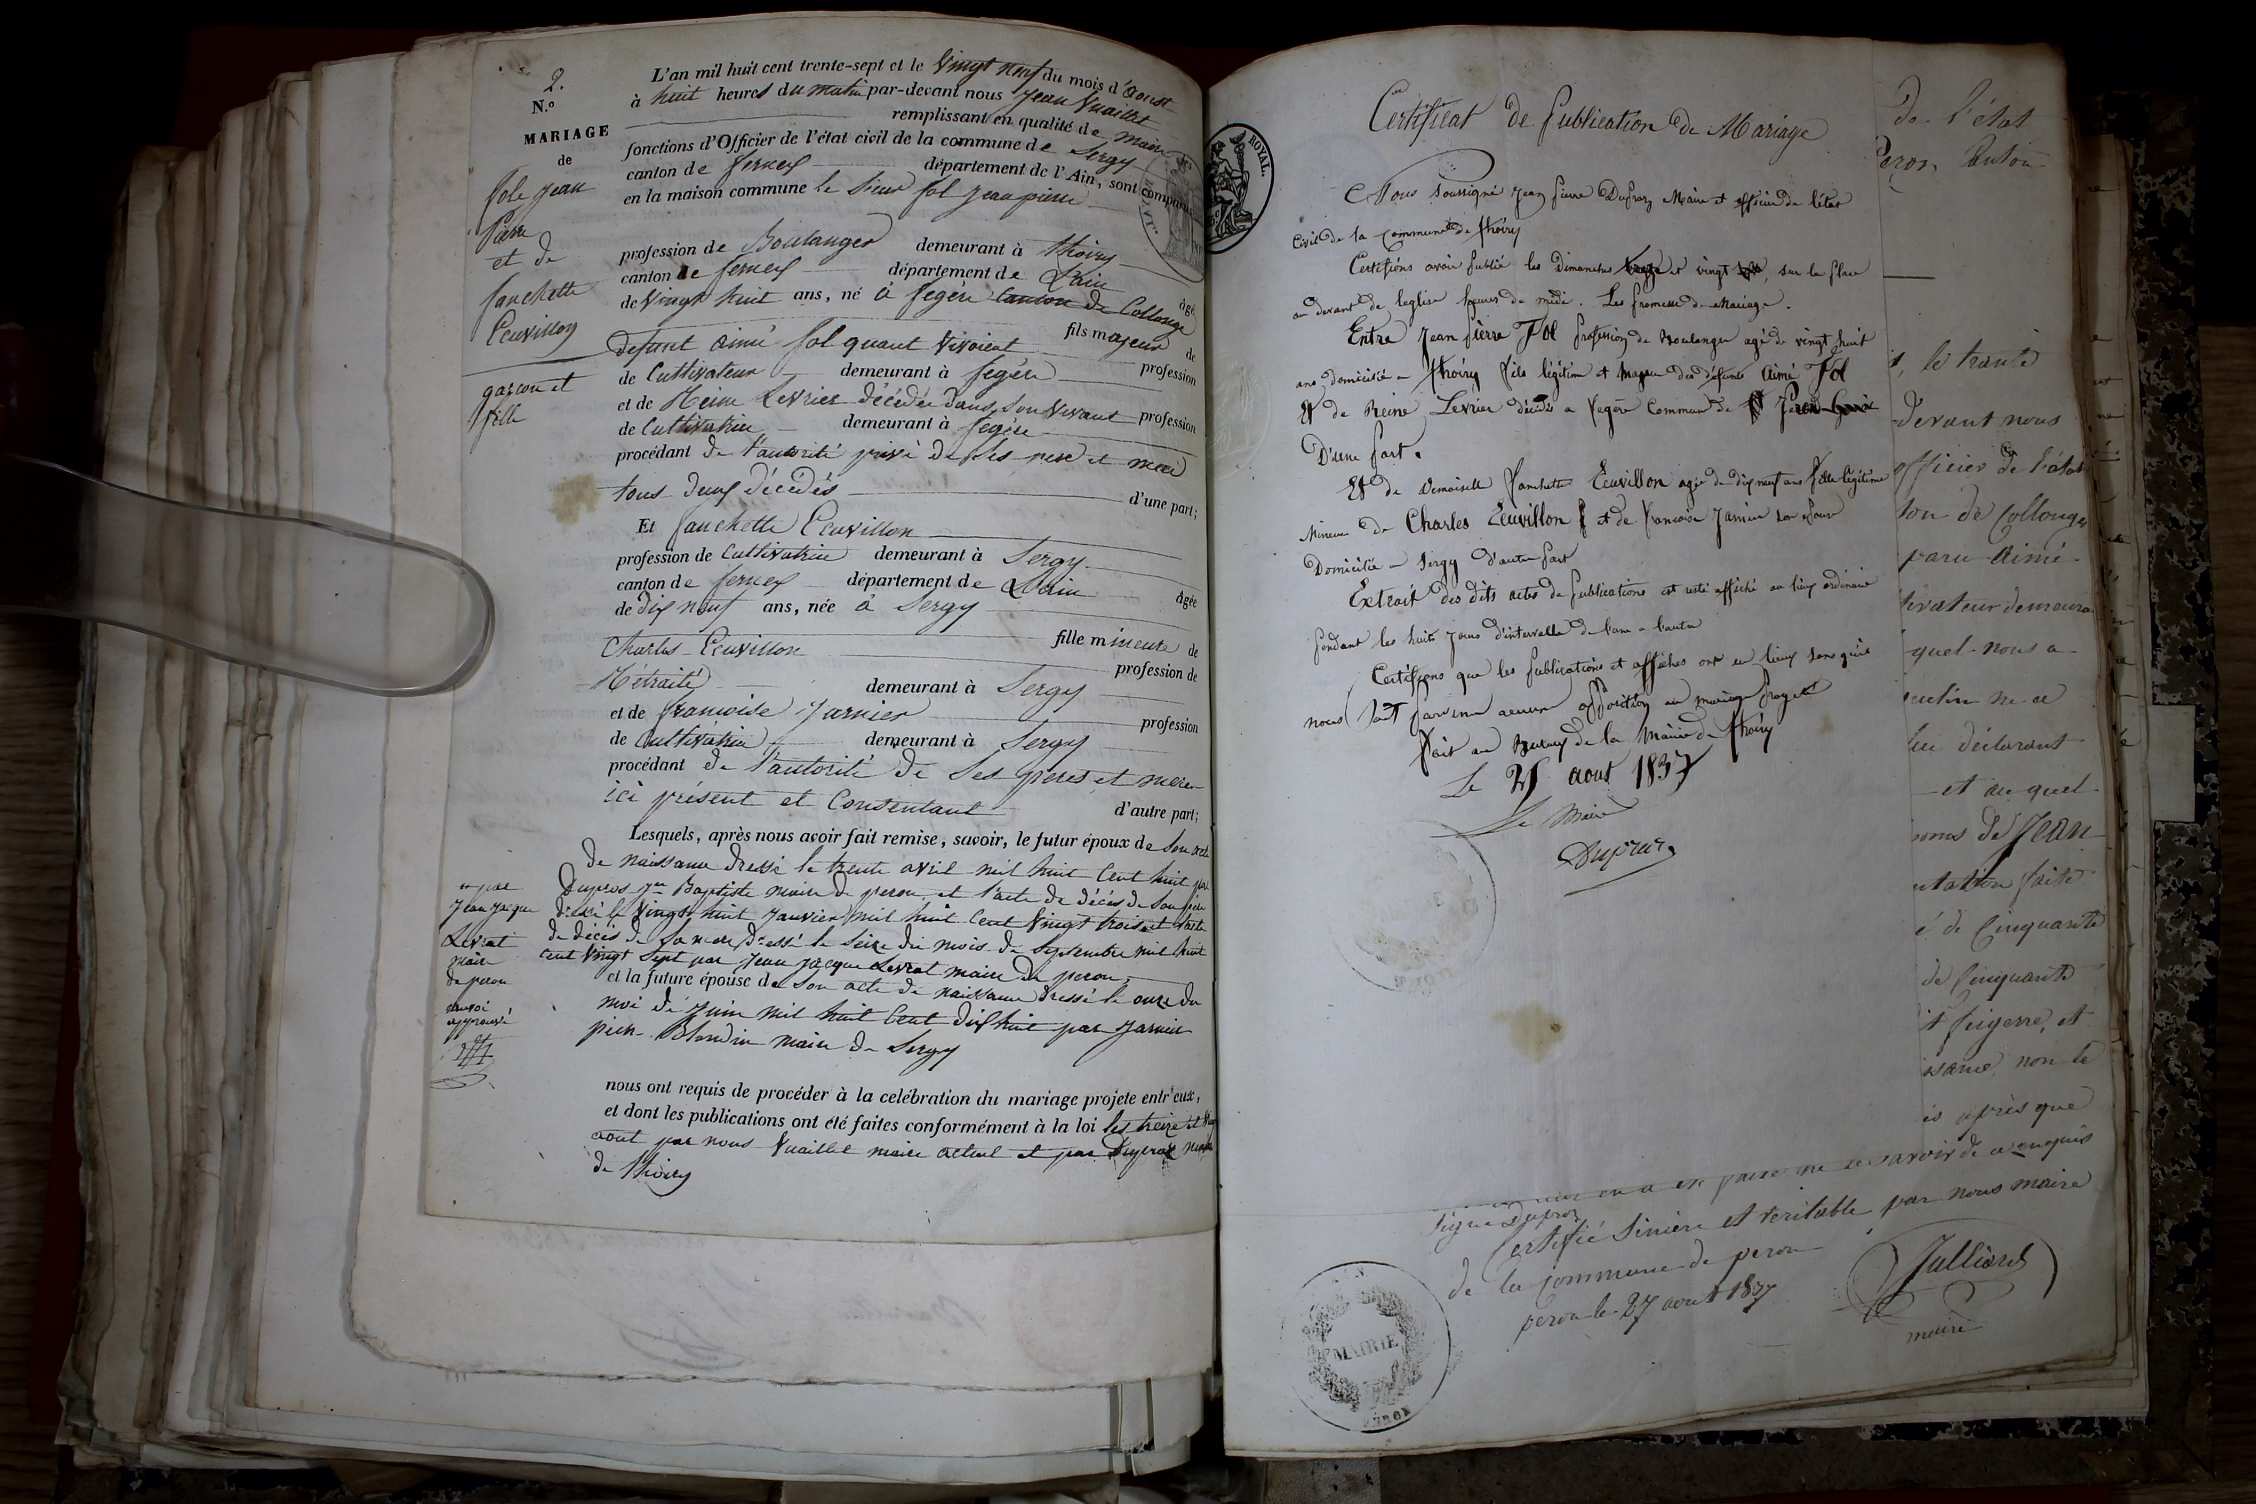 2.
N.º
MARIAGE
de
fole Jean
Pierre
et de
fanchette
Ecuvillon
garçon et
fille
L'an mil huit cent trente-sept et le Vingt neuf du mois d'Aoust
à huit heures du matin par-devant nous Jean Vuaillet
remplissant en qualité de maire
fonctions d'Officier de l'état civil de la commune de Sergy
canton de fernex département de l'Ain, sont comparus
en la maison commune le Sieur fol Jean pierre
profession de Boulanger demeurant à thoiry
canton de fernex département de Lain
agé
de Vingt huit ans, né à fegère canton de Collonge
fils majeur de
defunt aimé fol quant vivoient profession
de Cultivateur demeurant à fegère
et de Reine Levrier décédée dans son vivant profession
de Cultivatrice demeurant à fegère
procédant de l'autorité privé de ses pere et mere
tous deux décédés d'une part;
Et fanchette Ecuvillon
profession de Cultivatrice demeurant à Sergy
canton de fernex département de Lain agée
de dix neuf ans, née à Sergy
fille mineure de
Charles Ecuvillon profession de
Rétraité demeurant à Sergy
et de françoise Jarnier profession
de Cultivatrice demeurant à Sergy
procédant de l'autorité de ses peres et mere
ici présent et Consentant d'autre part;
Lesquels, après nous avoir fait remise, savoir, le futur époux de son acte
de naissance dressé le trente avril mil huit Cent huit par
Dupros Jn Baptiste maire de peron, et l'acte de décés de son père
dressé le Vingt huit Janvier mil huit Cent Vingt trois et l'acte
de décés de sa mere dressé le seize du mois de Septembre mil huit
cent Vingt Sept par Jean Jacque Levrat maire de peron
par
Jean Jacque
Levrat
maire
de peron
renvoi
approuvé
et la future épouse de son acte de naissance dressé le onze du
moi de Juin mil huit Cent dix huit par Jarnier
pierre Blondin maire de Sergy
nous ont requis de procéder à la celébration du mariage projete entr'eux,
et dont les publications ont été faites conformément à la loi les treize et
aout par nous Vuaillet maire actuel et par Dupraz maire
de thoiry
ROYAL.
Certificat de Publication de Mariage
Nous soussigné Jean Pierre Dupraz Maire et officier de l'état
Civil de la Commune de thoiry
Certifions avoir publié les Dimanches et vingt, sur la place
au devant de leglise heures de midi. Les promesse de Mariage.
Entre Jean Pierre Fol profession de Boulanger agé de vingt huit
ans domicilié a thoiry fils légitime et majeur des défunts Aimé Fol
Et de Reine Levrier décédée a fegère Commune de Peron
D'une part.
Et de Demoiselle fanchette Ecuvillon agée de dix neuf ans fille légitime
Mineure de Charles Ecuvillon et de francoise Jarnier
Domicilié a Sergy d'autre part
Extrait des dits actes de publications est resté affiché au lieux ordinaire
pendant les huits jours d'intervalle de l'une a l'autre
Certifions que les publications et affiches ont eu lieux sans qu'il
nous soit parvenu aucune opposition au mariage projeté
fait au Bureau de la Mairie de thoiry
Le 25 aout 1837
Le Maire
Dupraz
de l'état
Peron Canton
le trante
devant nous
officier de l'état
ton de Collonges
paru Aimé
tivateur demeura
quel nous a
lui déclarant
et au quel
noms de Jean
ntation faite
é de Cinquante
de Cinquante
et
non le
après que
Signé Dupraz
Certifié sincère et veritable par nous maire
de la commune de peron
peron le 27 aout 1837
Julliard
maire
MAIRIE
PÉRON